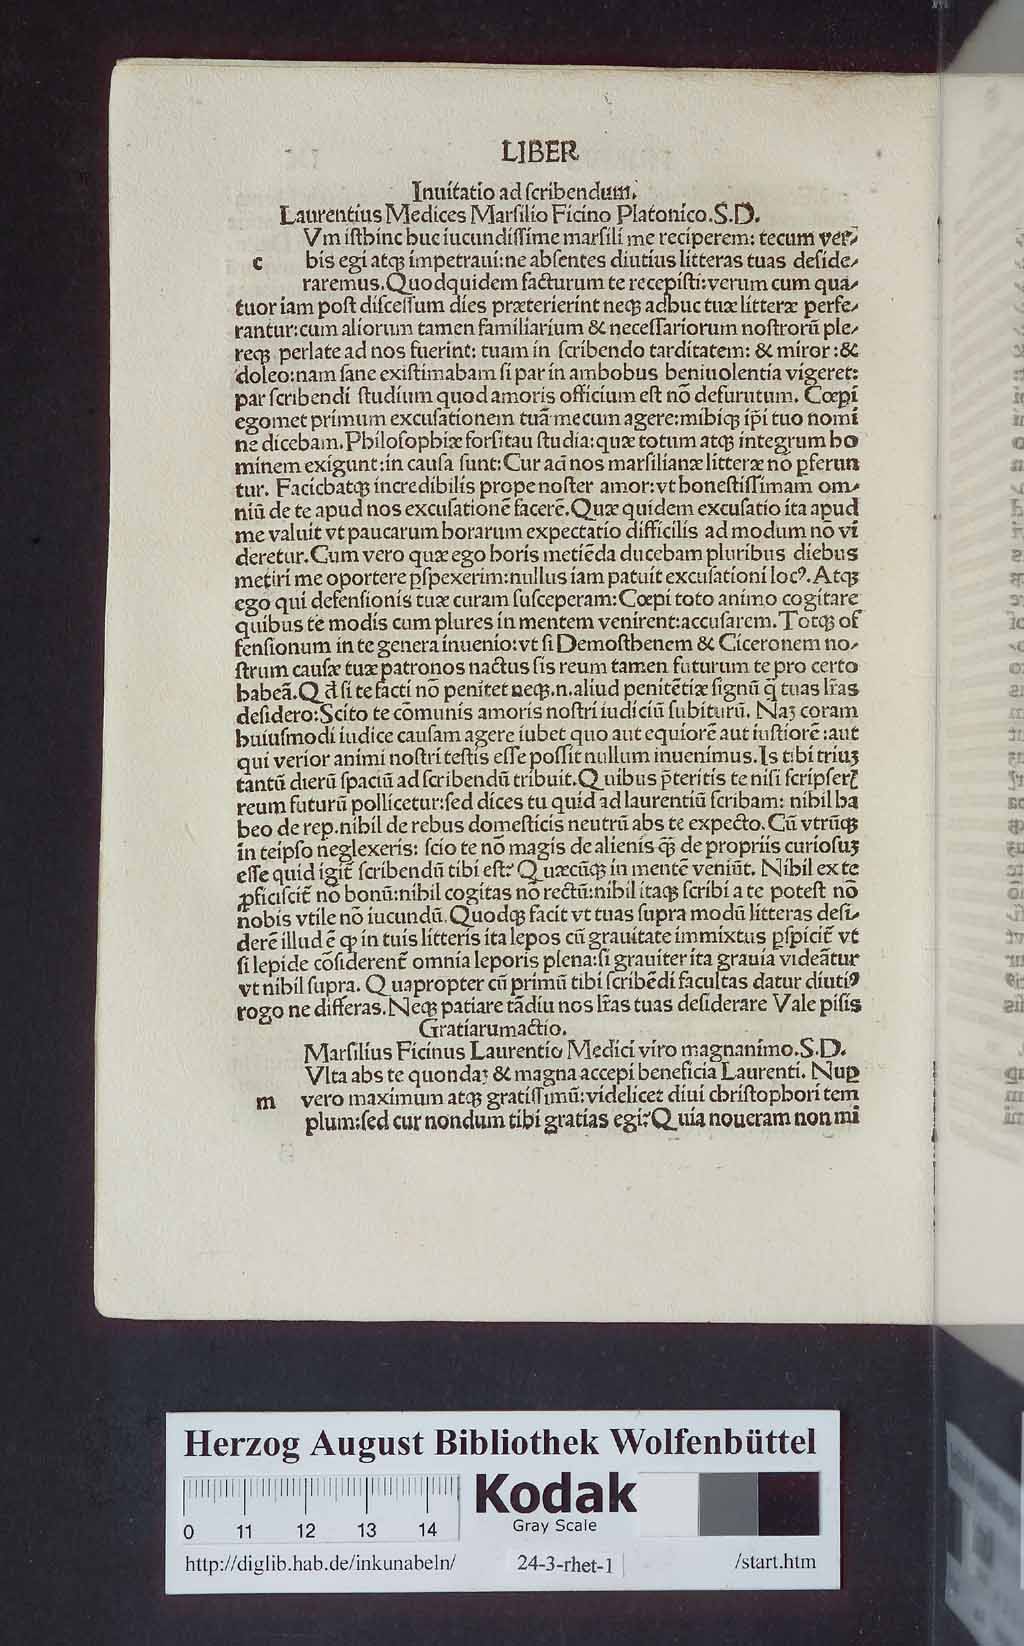 LIBER
Inuitatio ad ſcribendum.
Laurentius Medices Marſilio Ficino Platonico.S.D.
Vm iſthinc huc iucundiſſime marſili me reciperem: tecum ver⸗
c bis egi atqꝫ impetraui:ne abſentes diutius litteras tuas deſide⸗
raremus.Quodquidem facturum te recepiſti:verum cum qua⸗
tuor iam poſt diſceſſum dies præterierint neqꝫ adhuc tuæ litteræ perfe⸗
rantur:cum aliorum tamen familiarium & neceſſariorum noſtrorū ple⸗
reqꝫ perlate ad nos fuerint: tuam in ſcribendo tarditatem: & miror :&
doleo:nam ſane exiſtimabam ſi par in ambobus beniuolentia vigeret:
par ſcribendi ſtudium quod amoris officium eſt nō defurutum. Cœpi
egomet primum excuſationem tuā mecum agere:mihiqꝫ ip̄i tuo nomi
ne dicebam.Philoſophiæ forſitau ſtudia:quæ totum atqꝫ integrum ho
minem exigunt:in cauſa ſunt:Cur ad nos marſilianæ litteræ nō ꝑferun
tur. Faciebatqꝫ incredibilis prope noſter amor:vt honeſtiſſimam om⸗
niū de te apud nos excuſationē facerē.Quæ quidem excuſatio ita apud
me valuit vt paucarum horarum expectatio difficilis ad modum nō vi
deretur.Cum vero quæ ego horis metiēda ducebam pluribus diebus
metiri me oportere ꝑſpexerim:nullus iam patuit excuſationi locꝰ.Atqꝫ
ego qui defenſionis tuæ curam ſuſceperam:Cœpi toto animo cogitare
quibus te modis cum plures in mentem venirent:accuſarem.Totqꝫ of
fenſionum in te genera inuenio:vt ſi Demoſthenem & Ciceronem no⸗
ſtrum cauſæ tuæ patronos nactus ſis reum tamen futurum te pro certo
habeā.Qd̄ ſi te facti nō penitet neqꝫ.n.aliud penitētiæ ſignū q̄ tuas lr̄as
deſidero:Scito te cōmunis amoris noſtri iudiciū ſubiturū. Naꝫ coram
huiuſmodi iudice cauſam agere iubet quo aut equiorē aut iuſtiorē :aut
qui verior animi noſtri teſtis eſſe poſſit nullum inuenimus.Is tibi triuꝫ
tantū dierū ſpaciū ad ſcribendū tribuit.Quibus p̄teritis te niſi ſcripſerꝭ
reum futurū pollicetur:ſed dices tu quid ad laurentiū ſcribam: nihil ha
beo de rep.nihil de rebus domeſticis neutrū abs te expecto.Cū vtrūqꝫ
in teipſo neglexeris: ſcio te nō magis de alienis q̄ꝫ de propriis curioſuꝫ
eſſe quid igit̄ ſcribendū tibi eſt? Quæcūqꝫ in mentē veniūt. Nihil ex te
ꝓficiſcit̄ nō bonū:nihil cogitas nō rectū:nihil itaqꝫ ſcribi a te poteſt nō
nobis vtile nō iucundū.Quodqꝫ facit vt tuas ſupra modū litteras deſi⸗
derē illud ē ꝙ in tuis litteris ita lepos cū grauitate immixtus ꝑſpicit̄ vt
ſi lepide cōſiderent̄ omnia leporis plena:ſi grauiter ita grauia videātur
vt nihil ſupra. Quapropter cū primū tibi ſcribēdi facultas datur diutiꝰ
rogo ne differas.Neqꝫ patiare tādiu nos lr̄as tuas deſiderare Vale piſis
Gratiarumactio.
Marſilius Ficinus Laurentio Medici viro magnanimo.S.D.
Vlta abs te quondaꝫ & magna accepi beneficia Laurenti. Nuꝑ
m vero maximum atqꝫ gratiſſimū:videlicet diui chriſtophori tem
plum:ſed cur nondum tibi gratias egi? Quia noueram non mi
Herzog August Bibliothek Wolfenbüttel
Kodak
Gray Scale
0 11 12 13 14
http://diglib.hab.de/inkunabeln/ 24-3-rhet-1 /start.htm